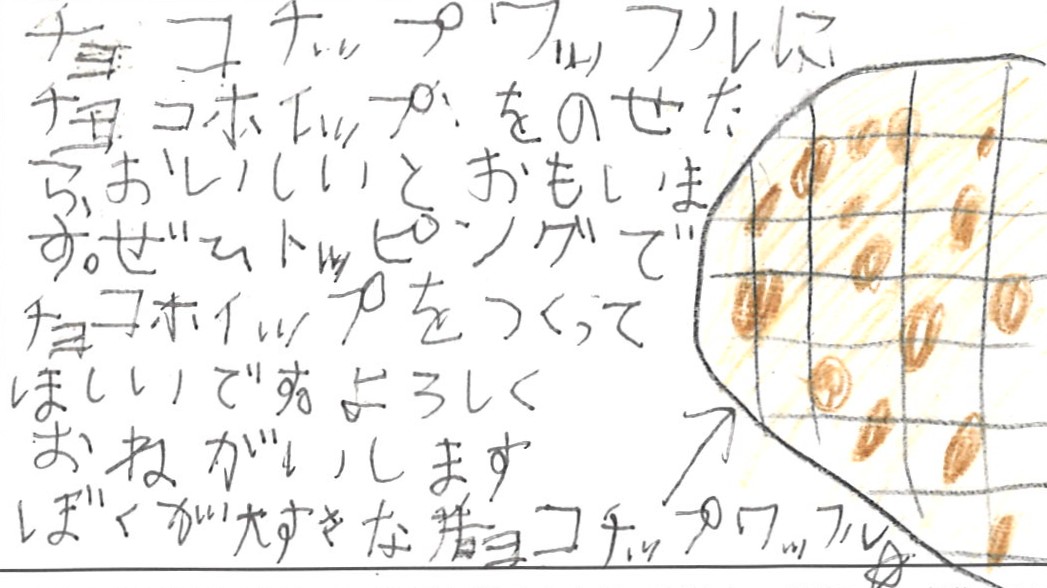 チョコチップワッフルに
チョコホイップをのせた
らおいしいとおもいま
す。ぜひトッピングで
チョコホイップをつくって
ほしいです。よろしく
おねがいします
ぼくが大すきなチョコチップワッフル